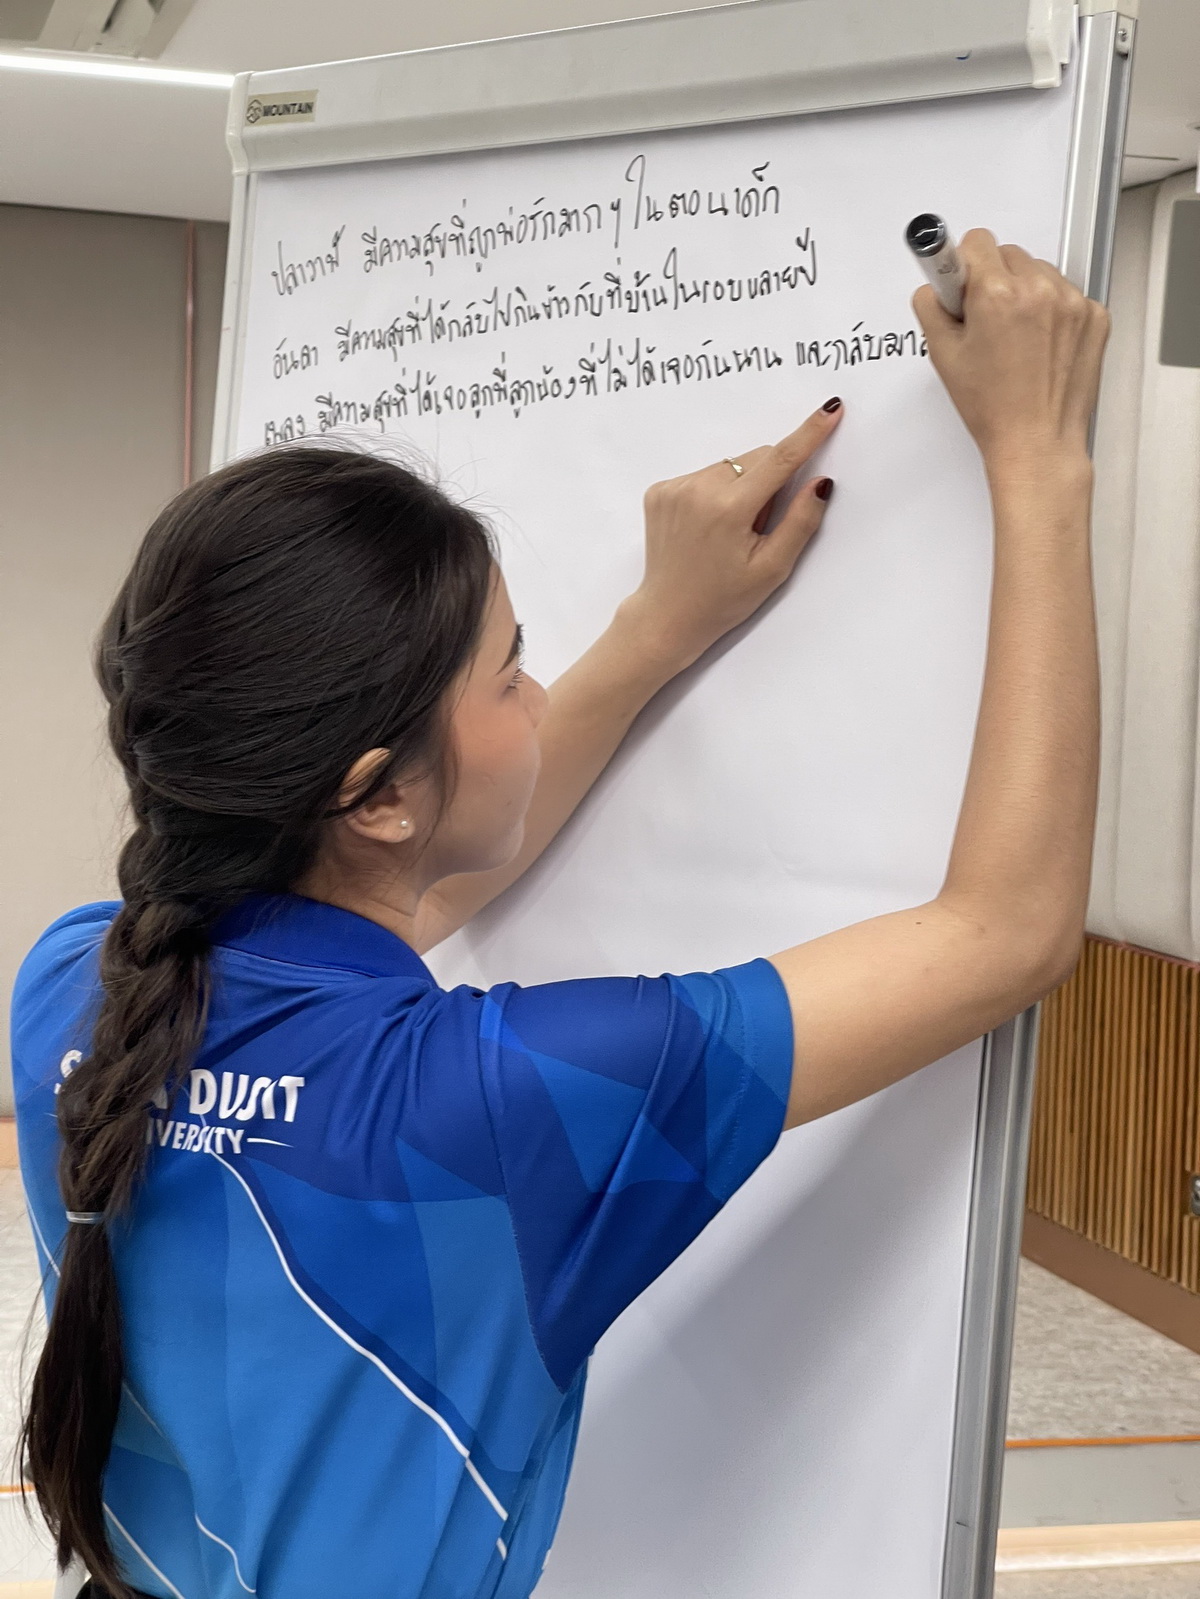 MOUNTAIN
ปลาวาฬ มีความสุขที่ถูกพ่อรักมาก ๆ ในตอนเด็ก
อันดา มีความสุขที่ได้กลับไปกินข้าวกับที่บ้านในรอบหลายปี
เพลง มีความสุขที่ได้เจอลูกพี่ลูกน้องที่ไม่ได้เจอกันนาน และกลับมา
DUSIT